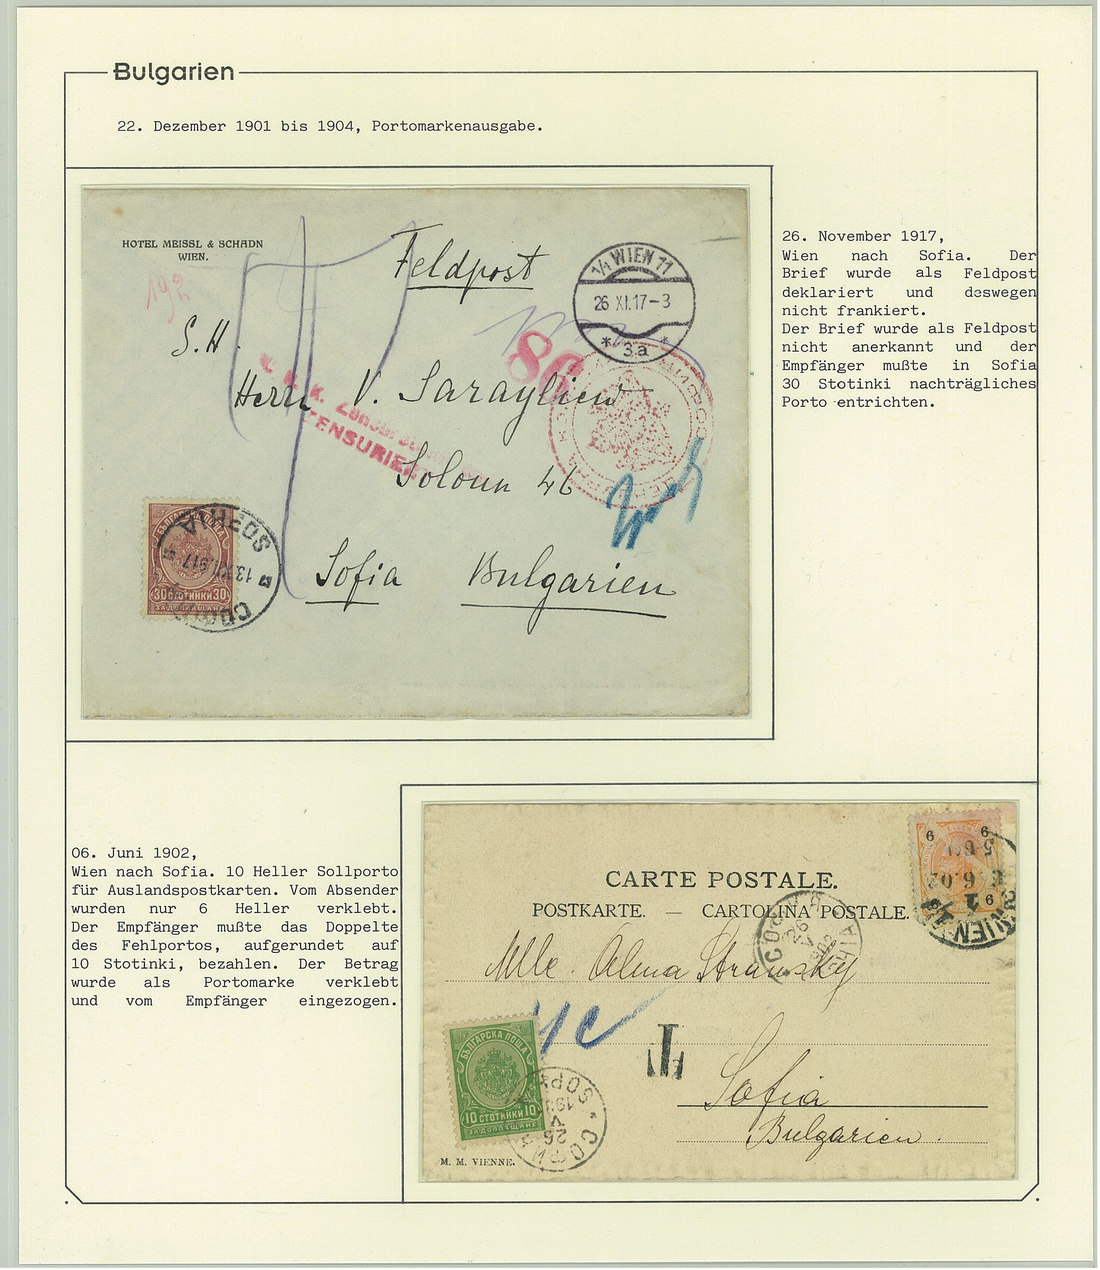 Bulgarien
22. Dezember 1901 bis 1904, Portomarkenausgabe.
HOTEL MEISSL & SCHADN
WIEN.
Feldpost
1/1 WIEN 11
26 XI.17-3
* 3a *
192
S.H.
86
Herrn V.
ZENSURIERT
Solun 46
БЪЛГАРСКА ПОЩА
30 СТОТИНКИ 30
ЗА ДОПЛАЩАНЕ
SOFIA
Sofia Bulgarien
26. November 1917,
Wien nach Sofia. Der
Brief wurde als Feldpost
deklariert und deswegen
nicht frankiert.
Der Brief wurde als Feldpost
nicht anerkannt und der
Empfänger mußte in Sofia
30 Stotinki nachträgliches
Porto entrichten.
06. Juni 1902,
Wien nach Sofia. 10 Heller Sollporto
für Auslandspostkarten. Vom Absender
wurden nur 6 Heller verklebt.
Der Empfänger mußte das Doppelte
des Fehlportos, aufgerundet auf
10 Stotinki, bezahlen. Der Betrag
wurde als Portomarke verklebt
und vom Empfänger eingezogen.
6 6
6
WIEN
6.6.02
CARTE POSTALE.
POSTKARTE. — CARTOLINA POSTALE.
Mlle. Alma Stransky
T
БЪЛГАРСКА ПОЩА
10 СТОТИНКИ 10
ЗА ДОПЛАЩАНЕ
Sofia
Bulgarien.
M. M. VIENNE.